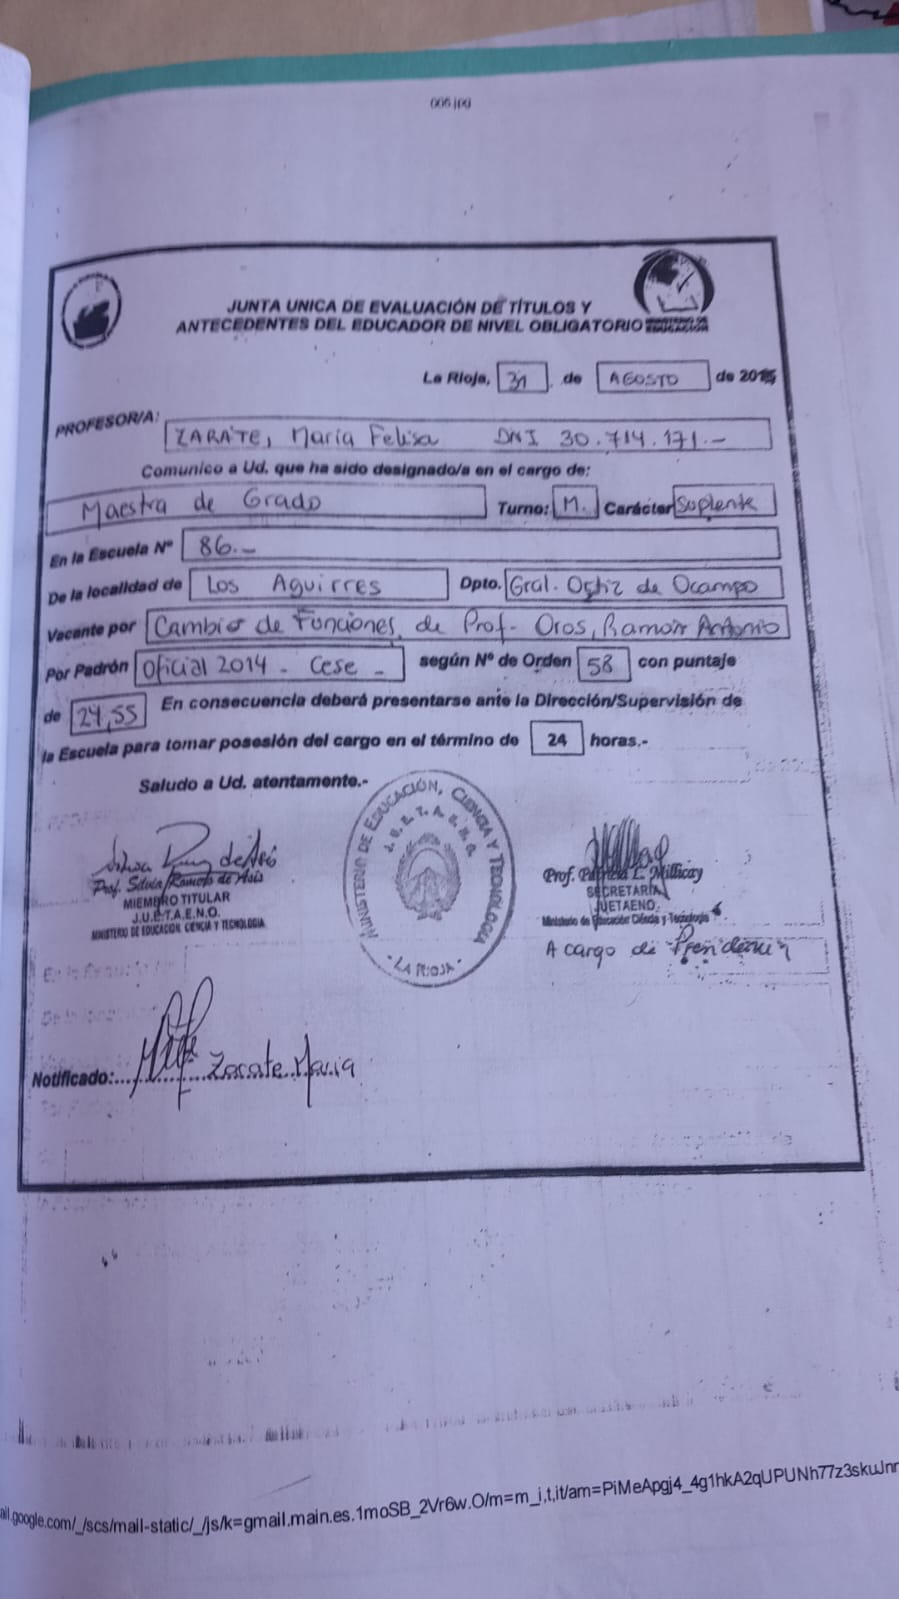 006.jpg
JUNTA UNICA DE EVALUACIÓN DE TÍTULOS Y
ANTECEDENTES DEL EDUCADOR DE NIVEL OBLIGATORIO
MINISTERIO DE EDUCACIÓN
La Rioja, 31 de AGOSTO de 2015
PROFESOR/A:
ZARATE, María Felisa DNI 30.714.171.-
Comunico a Ud. que ha sido designado/a en el cargo de:
Maestra de Grado Turno: M. Carácter Suplente
En la Escuela Nº 86.-
De la localidad de Los Aguirres Dpto. Gral. Ortiz de Ocampo
Vacante por Cambio de Funciones, de Prof. Oros, Ramón Antonio
Por Padrón Oficial 2014 - Cese - según Nº de Orden 58 con puntaje
de 24,55 En consecuencia deberá presentarse ante la Dirección/Supervisión de
la Escuela para tomar posesión del cargo en el término de 24 horas.-
Saludo a Ud. atentamente.-
MINISTERIO DE EDUCACIÓN, CIENCIA Y TECNOLOGÍA
J.U.E.T.A.E.N.O.
- LA RIOJA -
Prof. Silvia Romero de Asís
MIEMBRO TITULAR
J.U.E.T.A.E.N.O.
MINISTERIO DE EDUCACION CIENCIA Y TECNOLOGIA
Prof. Patricia L. Millicay
SECRETARIA
JUETAENO
Ministerio de Educación Ciencia y Tecnología
A cargo de Presidencia
Notificado: Zarate Maria
ail.google.com/_/scs/mail-static/_/js/k=gmail.main.es.1moSB_2Vr6w.O/m=m_i,t,it/am=PiMeApgj4_4g1hkA2qUPUNh77z3skuJnr